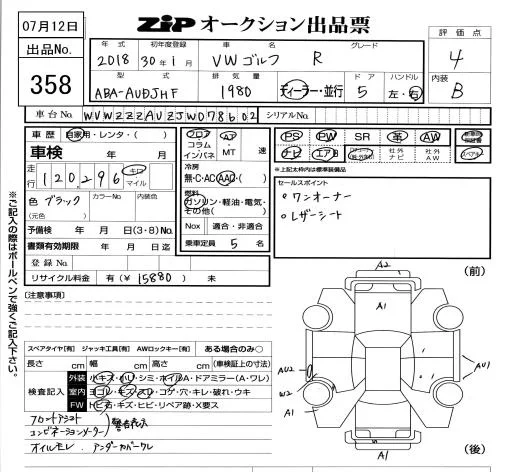 07月12日
ZIPオークション出品票
出品No.
358
年式 初年度登録 車名 グレード
2018 30年1月 VWゴルフ R
型式 排気量 ドア ハンドル
ABA-AUDJHF 1980 ディーラー・並行 5 左・右
評価点
4
内装
B
車台No. WVWZZZAUZJW078602 シリアルNo.
車歴 自家用・レンタ・( )
車検 年 月
走行 120,296 キロ マイル
色 ブラック カラーNo. 内装色
(元色)
予備検 年 月 日(3・8)No.
書類有効期限 年 月 日迄
登録No.
リサイクル料金 有(¥15880) 未
フロア コラム インパネ
AT・MT 速
冷房
無・C・AC・AAC・( )
燃料
ガソリン・軽油・電気・その他( )
Nox 適合・非適合
乗車定員 5 名
PS PW SR 革 AW
ナビ エアB 社外ナビ 社外AW
※上記太枠内は標準装備品
セールスポイント
・ワンオーナー
・レザーシート
※ご記入の際はボールペンで強くご記入下さい。
[注意事項]
スペアタイヤ[有] ジャッキ工具[有] AWロックキー[有] ある場合のみ○
長さ cm 幅 cm 高さ cm (車検証上の寸法)
検査記入
外装 小キズ・小U・シミ・ホイルA・ドアミラー(A・ワレ)
室内 ヨゴレ・キズ・スリ・コゲ・穴・キレ・破れ・ウキ
FW トビ石・キズ・ヒビ・リペア跡・X要ス
フロントアシスト
コンビネーションメーター 警告表示
オイルモレ アンダーカバーワレ
(前)
A2
A1
AU2
AU1
W2
A1
A1
(後)